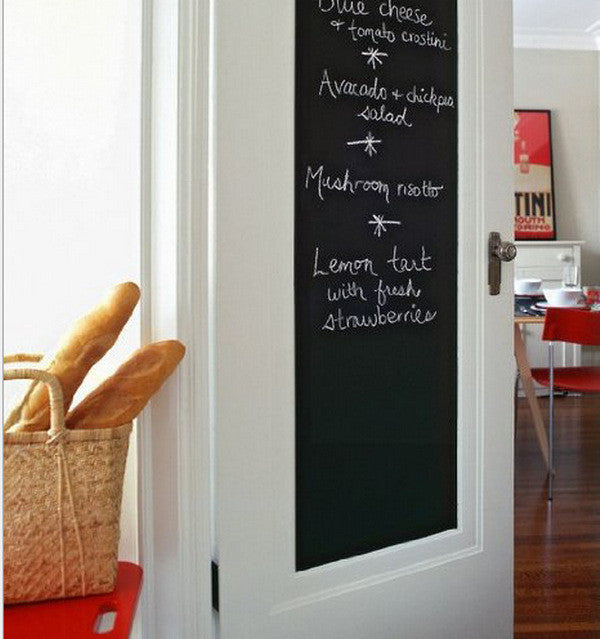 Blue cheese
& tomato crostini
Avacado + chickpea
salad
Mushroom risotto
Lemon tart
with fresh
strawberries
TINI
OUTH
ORINO